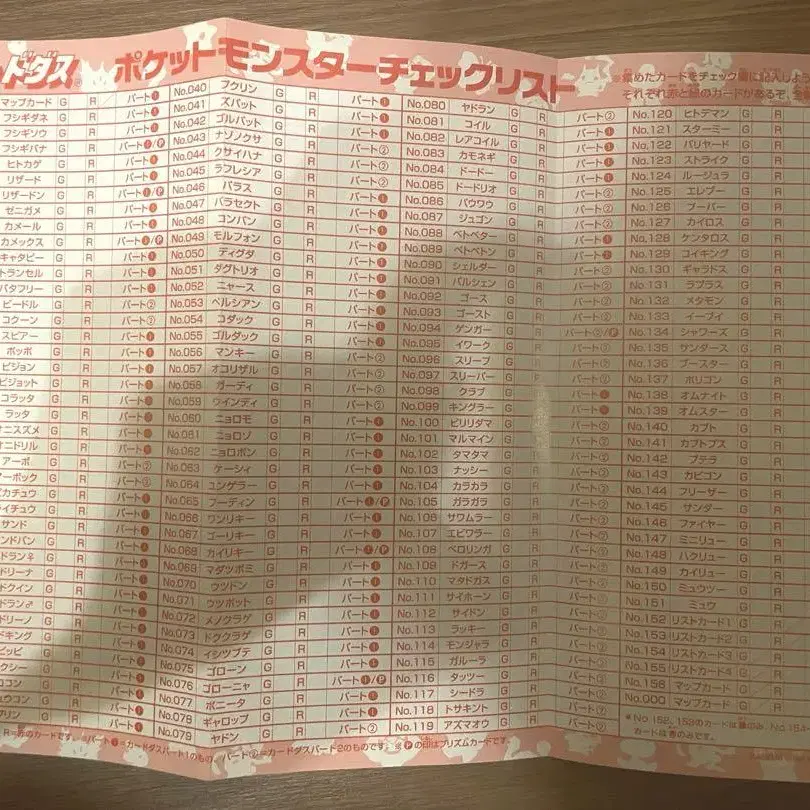 ドダス ポケットモンスターチェックリスト
マップカード G R パート❶
フシギダネ G R パート❶
フシギソウ G R パート❶
フシギバナ G R パート❶/P
ヒトカゲ G R パート❶
リザード G R パート❶
リザードン G R パート❶/P
ゼニガメ G R パート❶
カメール G R パート❶
カメックス G R パート❶/P
キャタピー G R パート❶
トランセル G R パート❶
バタフリー G R パート❶
ビードル G R パート②
コクーン G R パート②
スピアー G R パート
ポッポ G R パート❶
ピジョン G R パート❶
ピジョット G R パート❶
コラッタ G R パート❶
ラッタ G R パート❶
オニスズメ G R パート
オニドリル G R パート
アーボ G R パート②
アーボック G R パート②
ピカチュウ G R パート❶
イチュウ G R パート❶
サンド G R パート❶
ンドパン G R パート❶
ドラン♀ G R パート❶
ドリーナ G R パート❶
ドクイン G R パート❶
ドラン♂ G R パート❶
ドリーノ G R パート❶
ドキング G R パート❶
ピッピ G R パート❶
クシー G R パート❶
ロコン G R パート❶
ュウコン G R パート❶
プリン G R パート❶
No.040 プクリン G R パート❶
No.041 ズバット G R パート❶
No.042 ゴルバット G R パート❶
No.043 ナゾノクサ G R パート②
No.044 クサイハナ G R パート②
No.045 ラフレシア G R パート②
No.046 パラス G R パート❶
No.047 パラセクト G R パート❶
No.048 コンパン G R パート❶
No.049 モルフォン G R パート❶
No.050 ディグダ G R パート❶
No.051 ダグトリオ G R パート❶
No.052 ニャース G R パート❶
No.053 ペルシアン G R パート❶
No.054 コダック G R パート❶
No.055 ゴルダック G R パート❶
No.056 マンキー G R パート②
No.057 オコリザル G R パート②
No.058 ガーディ G R パート②
No.059 ウインディ G R パート②
No.060 ニョロモ G R パート❶
No.061 ニョロゾ G R パート❶
No.062 ニョロボン G R パート❶
No.063 ケーシィ G R パート❶
No.064 ユンゲラー G R パート❶
No.065 フーディン G R パート❶/P
No.066 ワンリキー G R パート❶
No.067 ゴーリキー G R パート❶
No.068 カイリキー G R パート❶/P
No.069 マダツボミ G R パート❶
No.070 ウツドン G R パート❶
No.071 ウツボット G R パート❶
No.072 メノクラゲ G R パート❶
No.073 ドククラゲ G R パート❶
No.074 イシツブテ G R パート❶
No.075 ゴローン G R パート❶
No.076 ゴローニャ G R パート❶/P
No.077 ポニータ G R パート❶
No.078 ギャロップ G R パート❶
No.079 ヤドン G R パート②
No.080 ヤドラン G R パート②
No.081 コイル G R パート❶
No.082 レアコイル G R パート❶
No.083 カモネギ G R パート❶
No.084 ドードー G R パート❶
No.085 ドードリオ G R パート②
No.086 パウワウ G R パート②
No.087 ジュゴン G R パート②
No.088 ベトベター G R パート❶
No.089 ベトベトン G R パート❶
No.090 シェルダー G R パート②
No.091 パルシェン G R パート②
No.092 ゴース G R パート②
No.093 ゴースト G R パート②
No.094 ゲンガー G R パート②/P
No.095 イワーク G R パート②
No.096 スリープ G R パート②
No.097 スリーパー G R パート②
No.098 クラブ G R パート❶
No.099 キングラー G R パート❶
No.100 ビリリダマ G R パート②
No.101 マルマイン G R パート②
No.102 タマタマ G R パート②
No.103 ナッシー G R パート②
No.104 カラカラ G R パート②
No.105 ガラガラ G R パート②
No.106 サワムラー G R パート②
No.107 エビワラー G R パート②
No.108 ベロリンガ G R パート②
No.109 ドガース G R パート②
No.110 マタドガス G R パート②
No.111 サイホーン G R パート②
No.112 サイドン G R パート②
No.113 ラッキー G R パート②
No.114 モンジャラ G R パート②
No.115 ガルーラ G R パート②
No.116 タッツー G R パート②
No.117 シードラ G R パート②
No.118 トサキント G R パート②
No.119 アズマオウ G R パート②
No.120 ヒトデマン G R
No.121 スターミー G R
No.122 バリヤード G R
No.123 ストライク G R
No.124 ルージュラ G R
No.125 エレブー G R
No.126 ブーバー G R
No.127 カイロス G R
No.128 ケンタロス G R
No.129 コイキング G R
No.130 ギャラドス G R
No.131 ラプラス G R
No.132 メタモン G R
No.133 イーブイ G R
No.134 シャワーズ G R
No.135 サンダース G R
No.136 ブースター G R
No.137 ポリゴン G R
No.138 オムナイト G R
No.139 オムスター G R
No.140 カブト G R
No.141 カブトプス G R
No.142 プテラ G R
No.143 カビゴン G R
No.144 フリーザー G R
No.145 サンダー G R
No.146 ファイヤー G R
No.147 ミニリュー G R
No.148 ハクリュー G R
No.149 カイリュー G R
No.150 ミュウツー G R
No.151 ミュウ G R
No.152 リストカード1 G R
No.153 リストカード2 G R
No.154 リストカード3 G R
No.155 リストカード4 G R
No.156 マップカード G R
No.000 マップカード G R
※集めたカードをチェック欄に記入しよう
それぞれ赤と緑のカードがあるぞ。
R=赤のカードです。 ※パート❶=カードダスパート1のもの、パート②=カードダスパート2のものです。 ※Pの印はプリズムカードです。
※No.152、153のカードは緑のみ、No.154
カードは赤のみです。